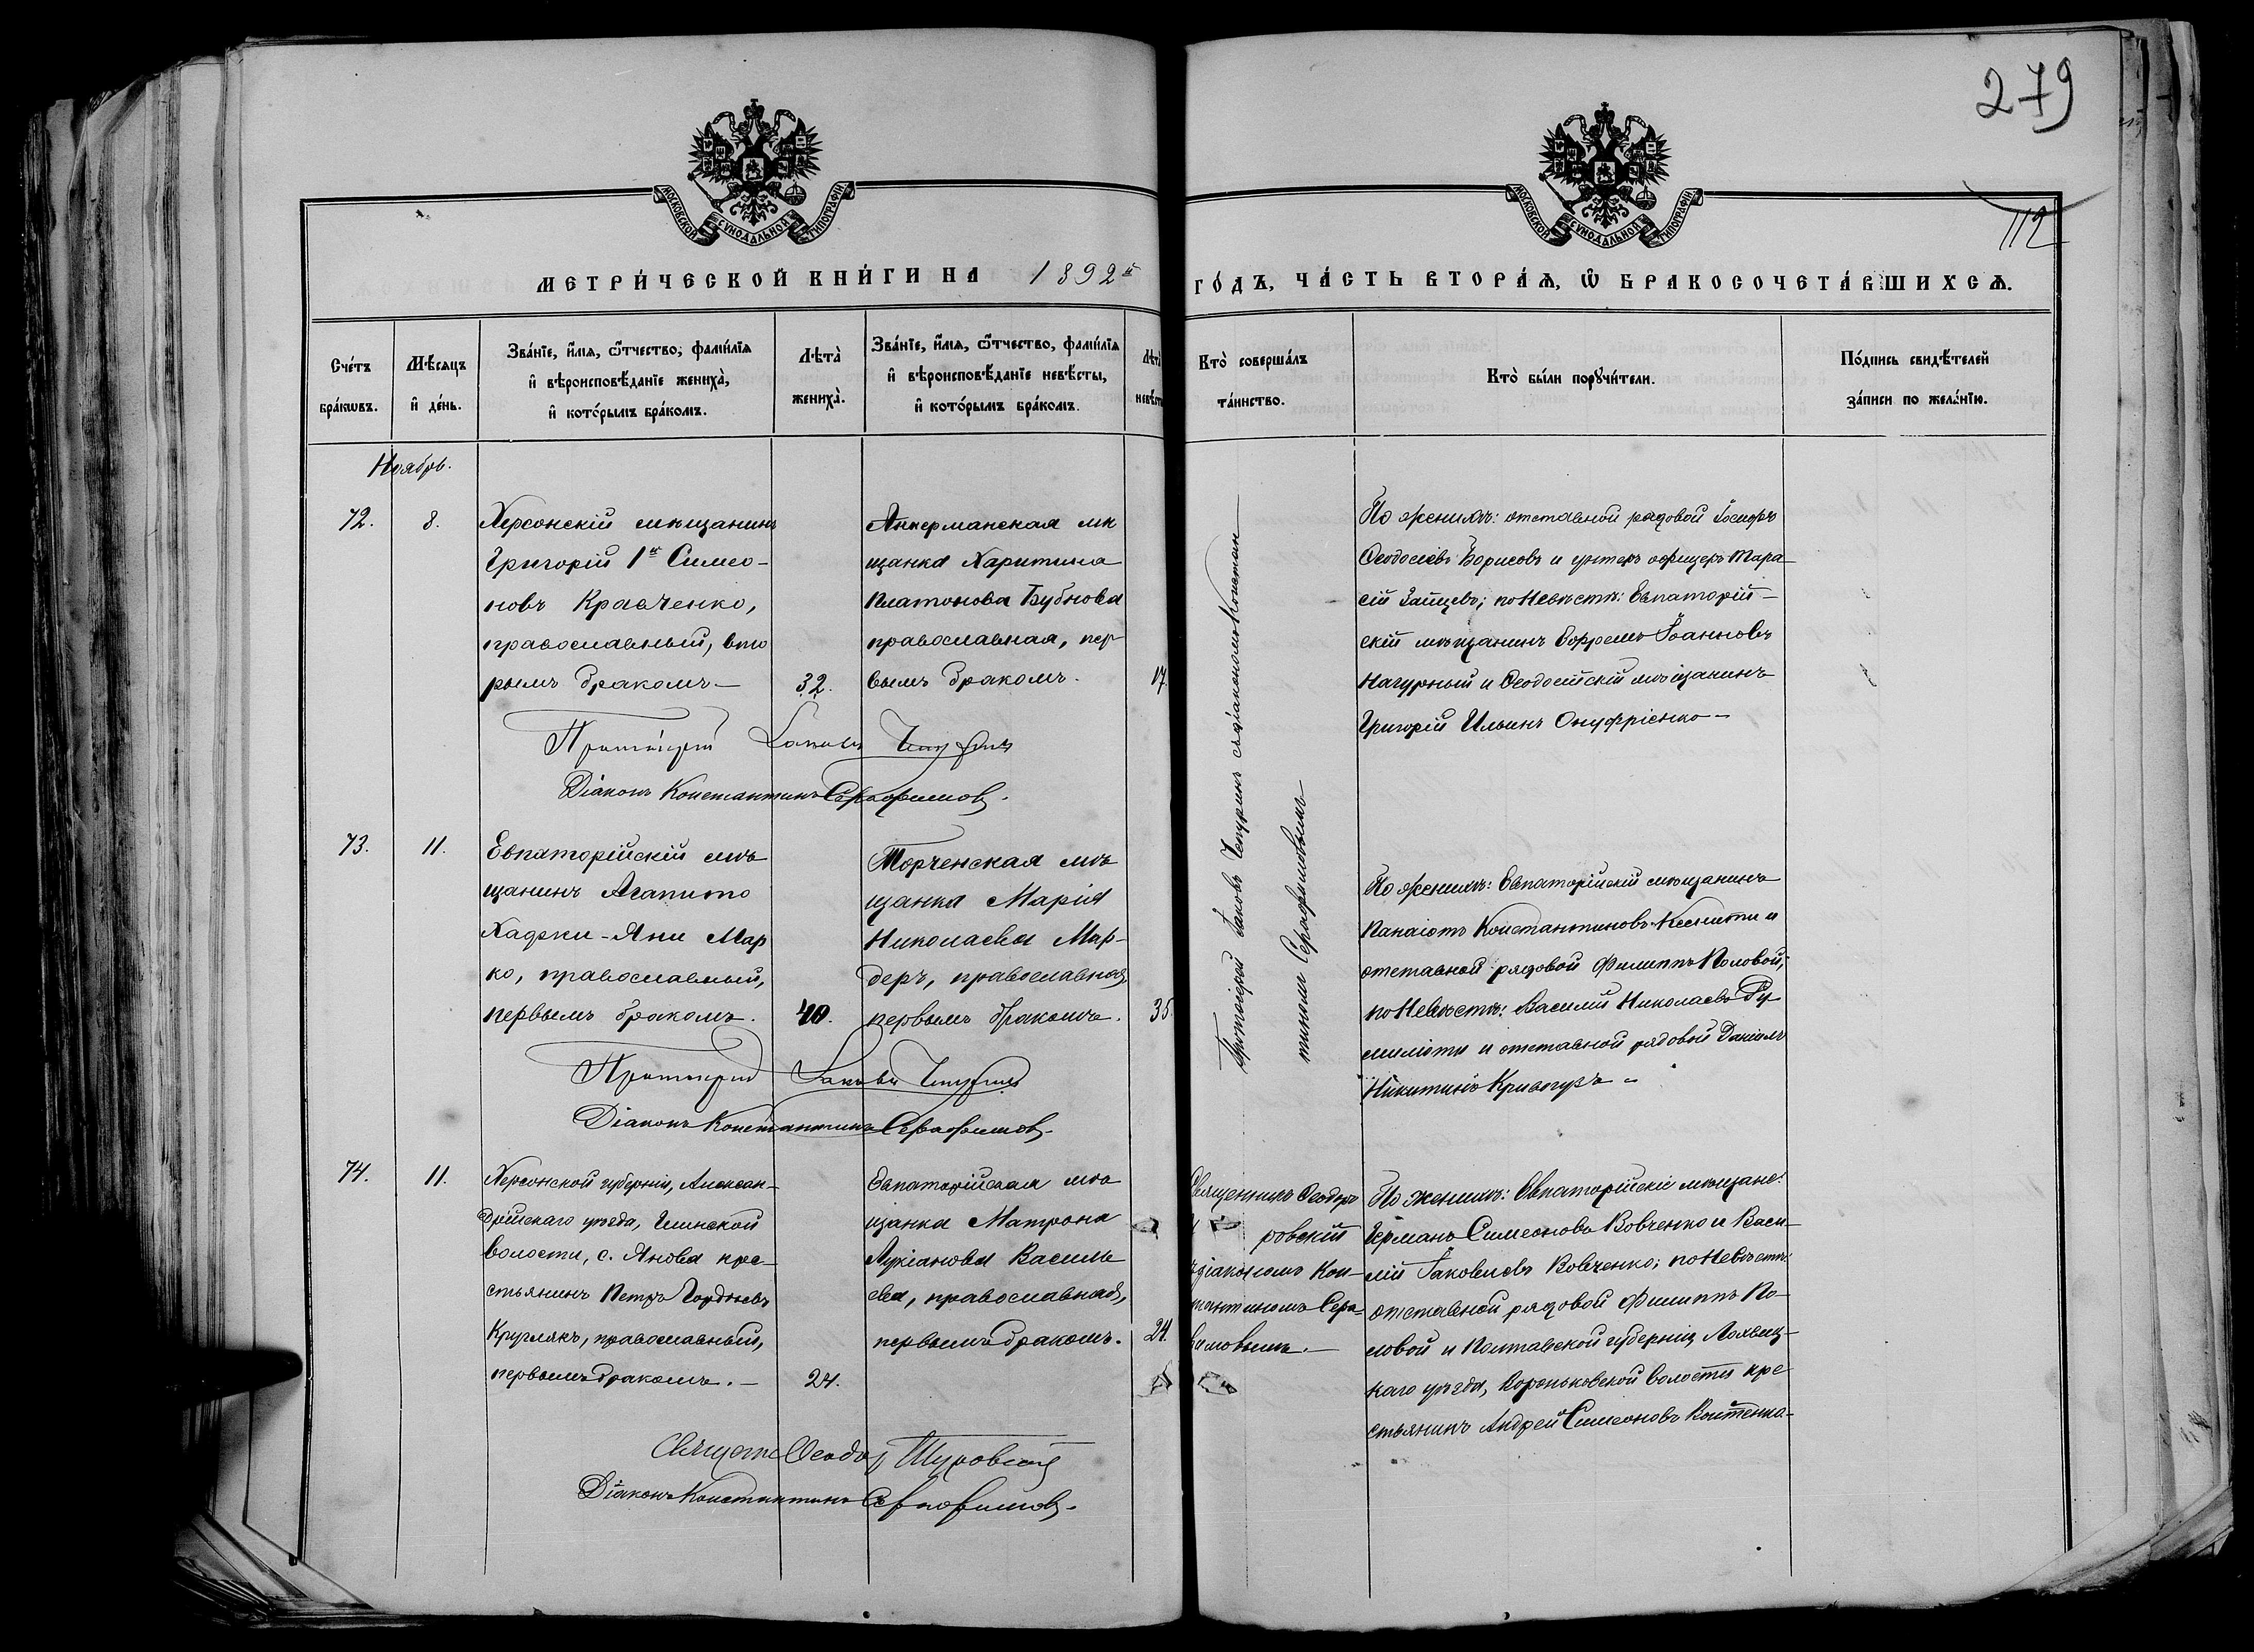 279
112
МОСКОВСКОЙ СѴНОДАЛЬНОЙ ТИПОГРАФІИ
МОСКОВСКОЙ СѴНОДАЛЬНОЙ ТИПОГРАФІИ
МЕТРИ́ЧЕСКОЙ КНИ́ГИ НА 1892й
ГО́ДЪ, ЧА́СТЬ ВТОРА́Ѧ, Ѽ БРАКОСОЧЕТА́ВШИХСѦ.
Сче́тъ
бра́кωвъ.
Мѣ́сяцъ
и҆ де́нь.
Зва́нїе, и҆́мя, ѻ҆́тчество, фами́лїя
и҆ вѣроисповѣ́данїе жениха̀,
и҆ кото́рымъ бра́комъ.
Лѣта̀
жениха̀.
Зва́нїе, и҆́мя, ѻ҆́тчество, фами́лїя
и҆ вѣроисповѣ́данїе невѣ́сты,
и҆ кото́рымъ бра́комъ.
Лѣта̀
невѣ́сты
Кто̀ соверша́лъ
та́инство.
Кто̀ бы́ли порꙋчи́тели.
По́дпись свидѣ́телей
за́писи по жела́нїю.
Ноябрь.
72.
8.
Херсонскій мѣщанинъ
Григорій 1й Симео-
новъ Кравченко,
православный, вто
рымъ бракомъ.—
32.
Аккерманская мѣ
щанка Харитина
Платонова Бубнова
православная, пер
вымъ бракомъ.
17.
Протоіерей Іаковъ Чепуринъ съ діакономъ Констан
тиномъ Серафимовымъ
По женихѣ: отставной рядовой Іосифъ
Ѳеодосіевъ Борисовъ и унтеръ офицеръ Тара-
сій Зайцевъ; по невѣстѣ: Евпаторій-
скій мѣщанинъ Ефремъ Іоанновъ
Нагурный и Ѳеодосійскій мѣщанинъ
Григорій Ильинъ Онуфріенко—
Протоіерей Іаковъ Чепуринъ
Діаконъ Константинъ Серафимовъ.
73.
11.
Евпаторійскій мѣ
щанинъ Агапито
Хаджи-Яни Мар
ко, православный,
первымъ бракомъ.
40.
Торченская мѣ
щанка Марія
Николаева Мар-
деръ, православная,
первымъ бракомъ.
35.
По женихѣ: Евпаторійскій мѣщанинъ
Панаіотъ Константиновъ и
отставной рядовой Филиппъ Половой;
по невѣстѣ: Василій Николаевъ Ру
и отставной рядовой Даніилъ
Никитинъ
Протоіерей Іаковъ Чепуринъ
Діаконъ Константинъ Серафимовъ.
74.
11.
Херсонской губерніи, Алексан-
дрійскаго уѣзда,
волости, с. Янова кре-
стьянинъ Петръ Гордѣевъ
Круглякъ, православный,
первымъ бракомъ.—
24.
Евпаторійская мѣ
щанка Матрона
Лукіанова Василь
ева, православная,
первымъ бракомъ.
24.
Священникъ Ѳеодоръ
ровскій
діакономъ Кон-
стантиномъ Сера-
фимовымъ.—
По женихѣ: Евпаторійскіе мѣщане:
Германъ Симеоновъ Вовченко и Васи-
лій Іаковлевъ Вовченко; по невѣстѣ:
отставной рядовой Филиппъ По-
ловой и Полтавской губерніи, Лохвиц-
каго уѣзда, волости кре
стьянинъ Андрей Симеоновъ
Священ Ѳеодоръ Туровскій
Діаконъ Константинъ Серафимовъ.